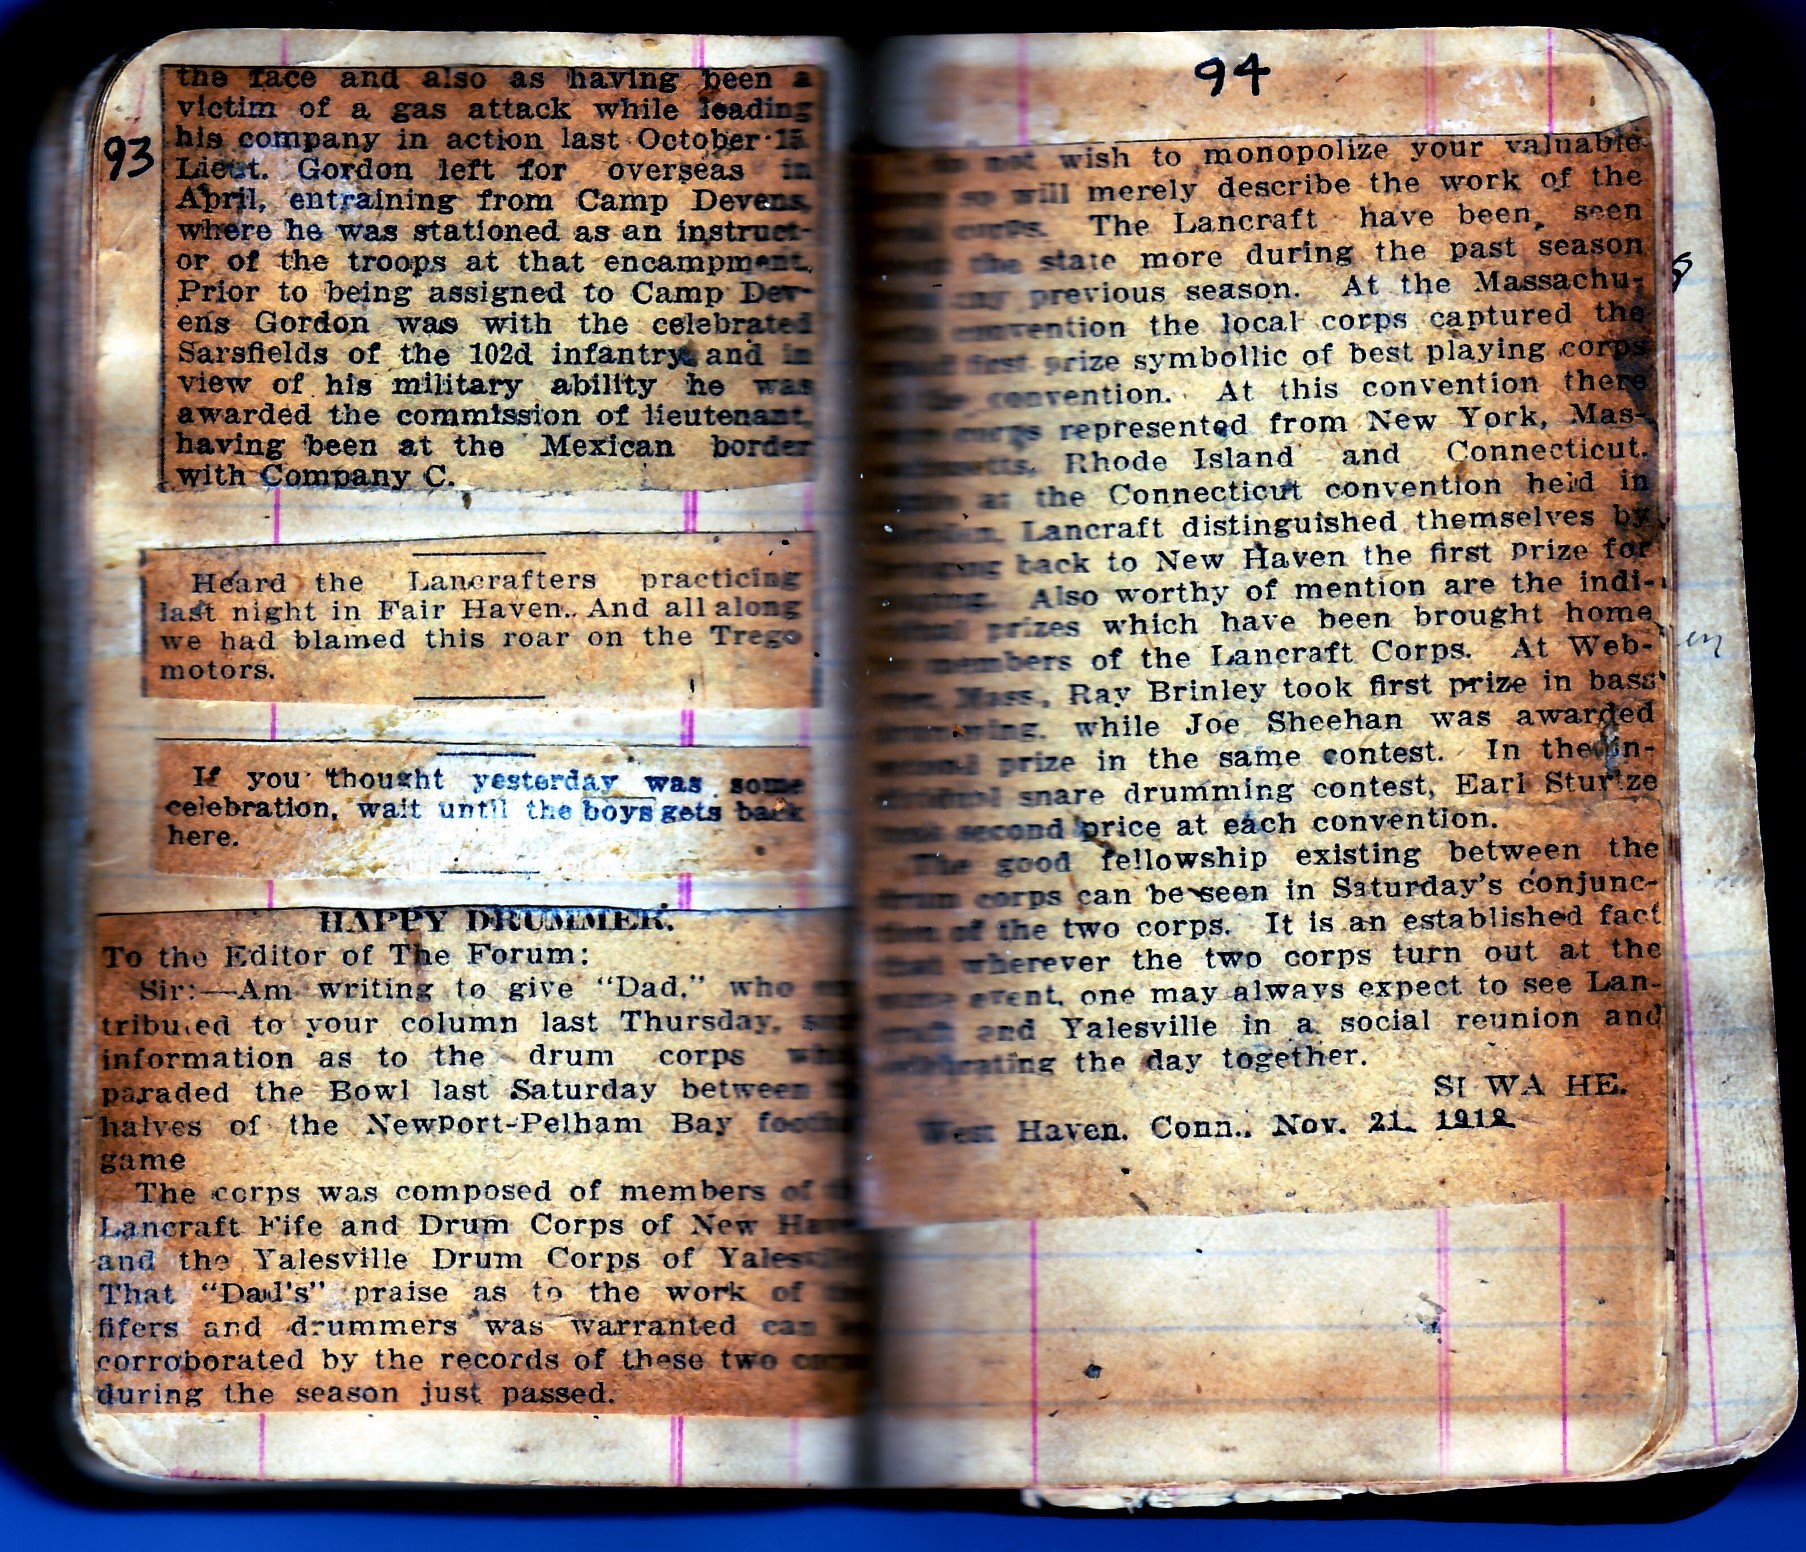 93
the face and also as having been a
victim of a gas attack while leading
his company in action last October 15.
Lieut. Gordon left for overseas in
April, entraining from Camp Devens,
where he was stationed as an instruct-
or of the troops at that encampment.
Prior to being assigned to Camp Dev-
ens Gordon was with the celebrated
Sarsfields of the 102d infantry and in
view of his military ability he was
awarded the commission of lieutenant,
having been at the Mexican border
with Company C.
Heard the Lancrafters practicing
last night in Fair Haven.. And all along
we had blamed this roar on the Trego
motors.
If you thought yesterday was some
celebration, wait until the boys gets back
here.
HAPPY DRUMMER.
To the Editor of The Forum:
Sir:—Am writing to give "Dad," who
tributed to your column last Thursday,
information as to the drum corps
paraded the Bowl last Saturday between
halves of the Newport-Pelham Bay
game
The corps was composed of members of
Lancraft Fife and Drum Corps of New
and the Yalesville Drum Corps of
That "Dad's" praise as to the work of
fifers and drummers was warranted can
corroborated by the records of these two
during the season just passed.
94
not wish to monopolize your valuable
so will merely describe the work of the
corps. The Lancraft have been seen
the state more during the past season
any previous season. At the Massachu-
convention the local corps captured the
first prize symbollic of best playing corps
convention. At this convention there
corps represented from New York, Mas-
Rhode Island and Connecticut.
at the Connecticut convention held in
Lancraft distinguished themselves by
back to New Haven the first prize for
Also worthy of mention are the indi-
prizes which have been brought home
members of the Lancraft Corps. At Web-
Mass., Ray Brinley took first prize in bass
while Joe Sheehan was awarded
prize in the same contest. In the in-
snare drumming contest, Earl Sturtze
second price at each convention.
The good fellowship existing between the
drum corps can be seen in Saturday's conjunc-
of the two corps. It is an established fact
that wherever the two corps turn out at the
event, one may always expect to see Lan-
and Yalesville in a social reunion and
celebrating the day together.
SI WA HE.
West Haven. Conn., Nov. 21. 1918.